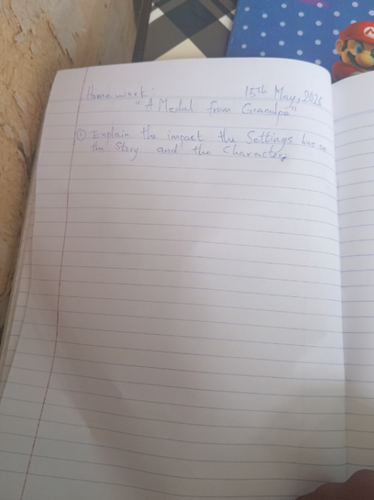 Home work: 15th May, 2026
"A Medal from Grandpa"
① Explain the impact the Settings has on
the Story and the Characters